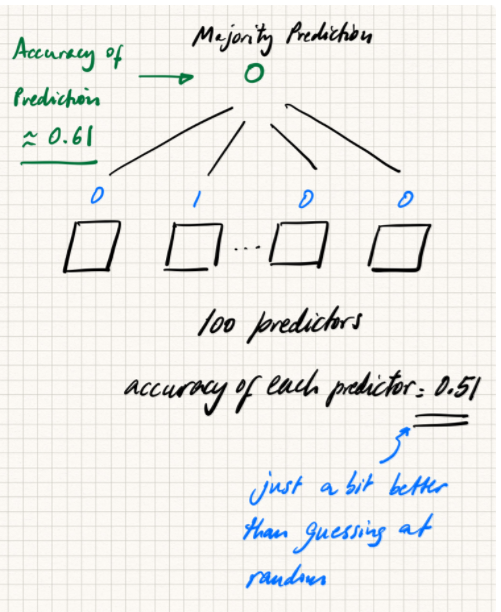 Majority Prediction
Accuracy of
Prediction
≈ 0.61
0
0 1 0 0
...
100 predictors
accuracy of each predictor = 0.51
just a bit better
than guessing at
random